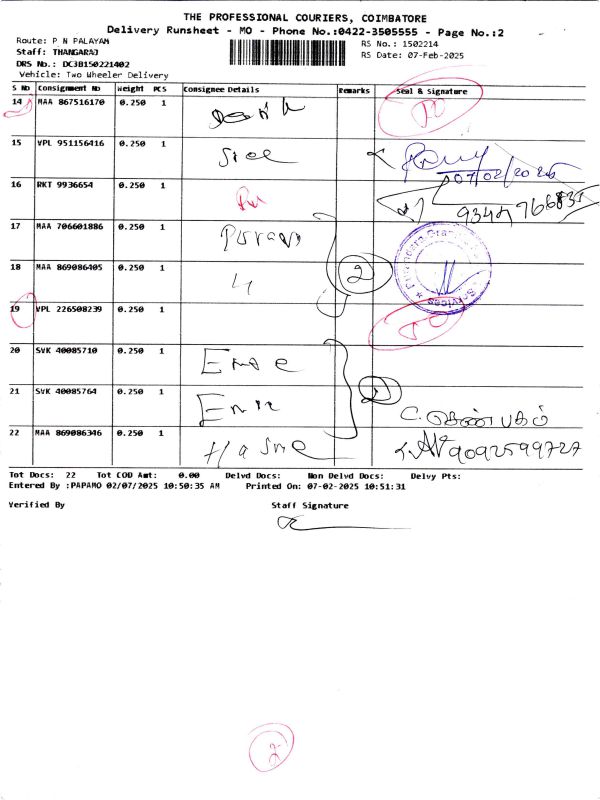 THE PROFESSIONAL COURIERS, COIMBATORE
Delivery Runsheet - MO - Phone No.:0422-3505555 - Page No.:2
Route: P N PALAYAM
RS No.: 1502214
Staff: THANGARAJ
RS Date: 07-Feb-2025
DRS No.: DC3B150221402
Vehicle: Two Wheeler Delivery
S No Consignment No Weight PCS Consignee Details Remarks Seal & Signature
14 MAA 867516170 0.250 1
15 VPL 951156416 0.250 1
07/02/2025
16 RKT 9936654 0.250 1
17 MAA 706601886 0.250 1
18 MAA 869086405 0.250 1 2
19 VPL 226508239 0.250 1
20 SVK 40085710 0.250 1
21 SVK 40085764 0.250 1
C. செண்பகம்
22 MAA 869086346 0.250 1 9092599727
Tot Docs: 22 Tot COD Amt: 0.00 Delvd Docs: Non Delvd Docs: Delvy Pts:
Entered By :PAPAMO 02/07/2025 10:50:35 AM Printed On: 07-02-2025 10:51:31
Verified By Staff Signature
2